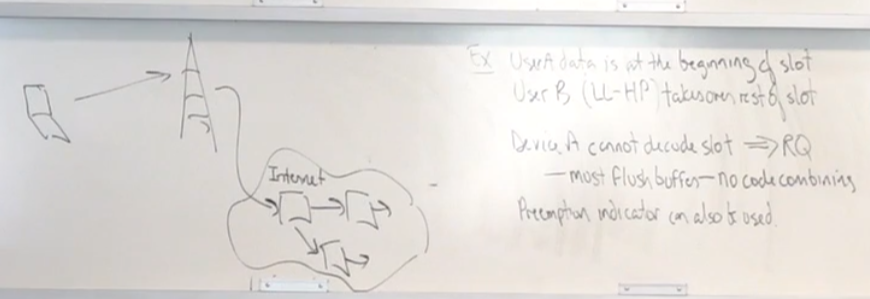 Internet
Ex User A data is at the beginning of slot
User B (LL-HP) takes over rest of slot
Device A cannot decode slot ⇒ RQ
— most flush buffer — no code combining
Preemption indicator can also be used.